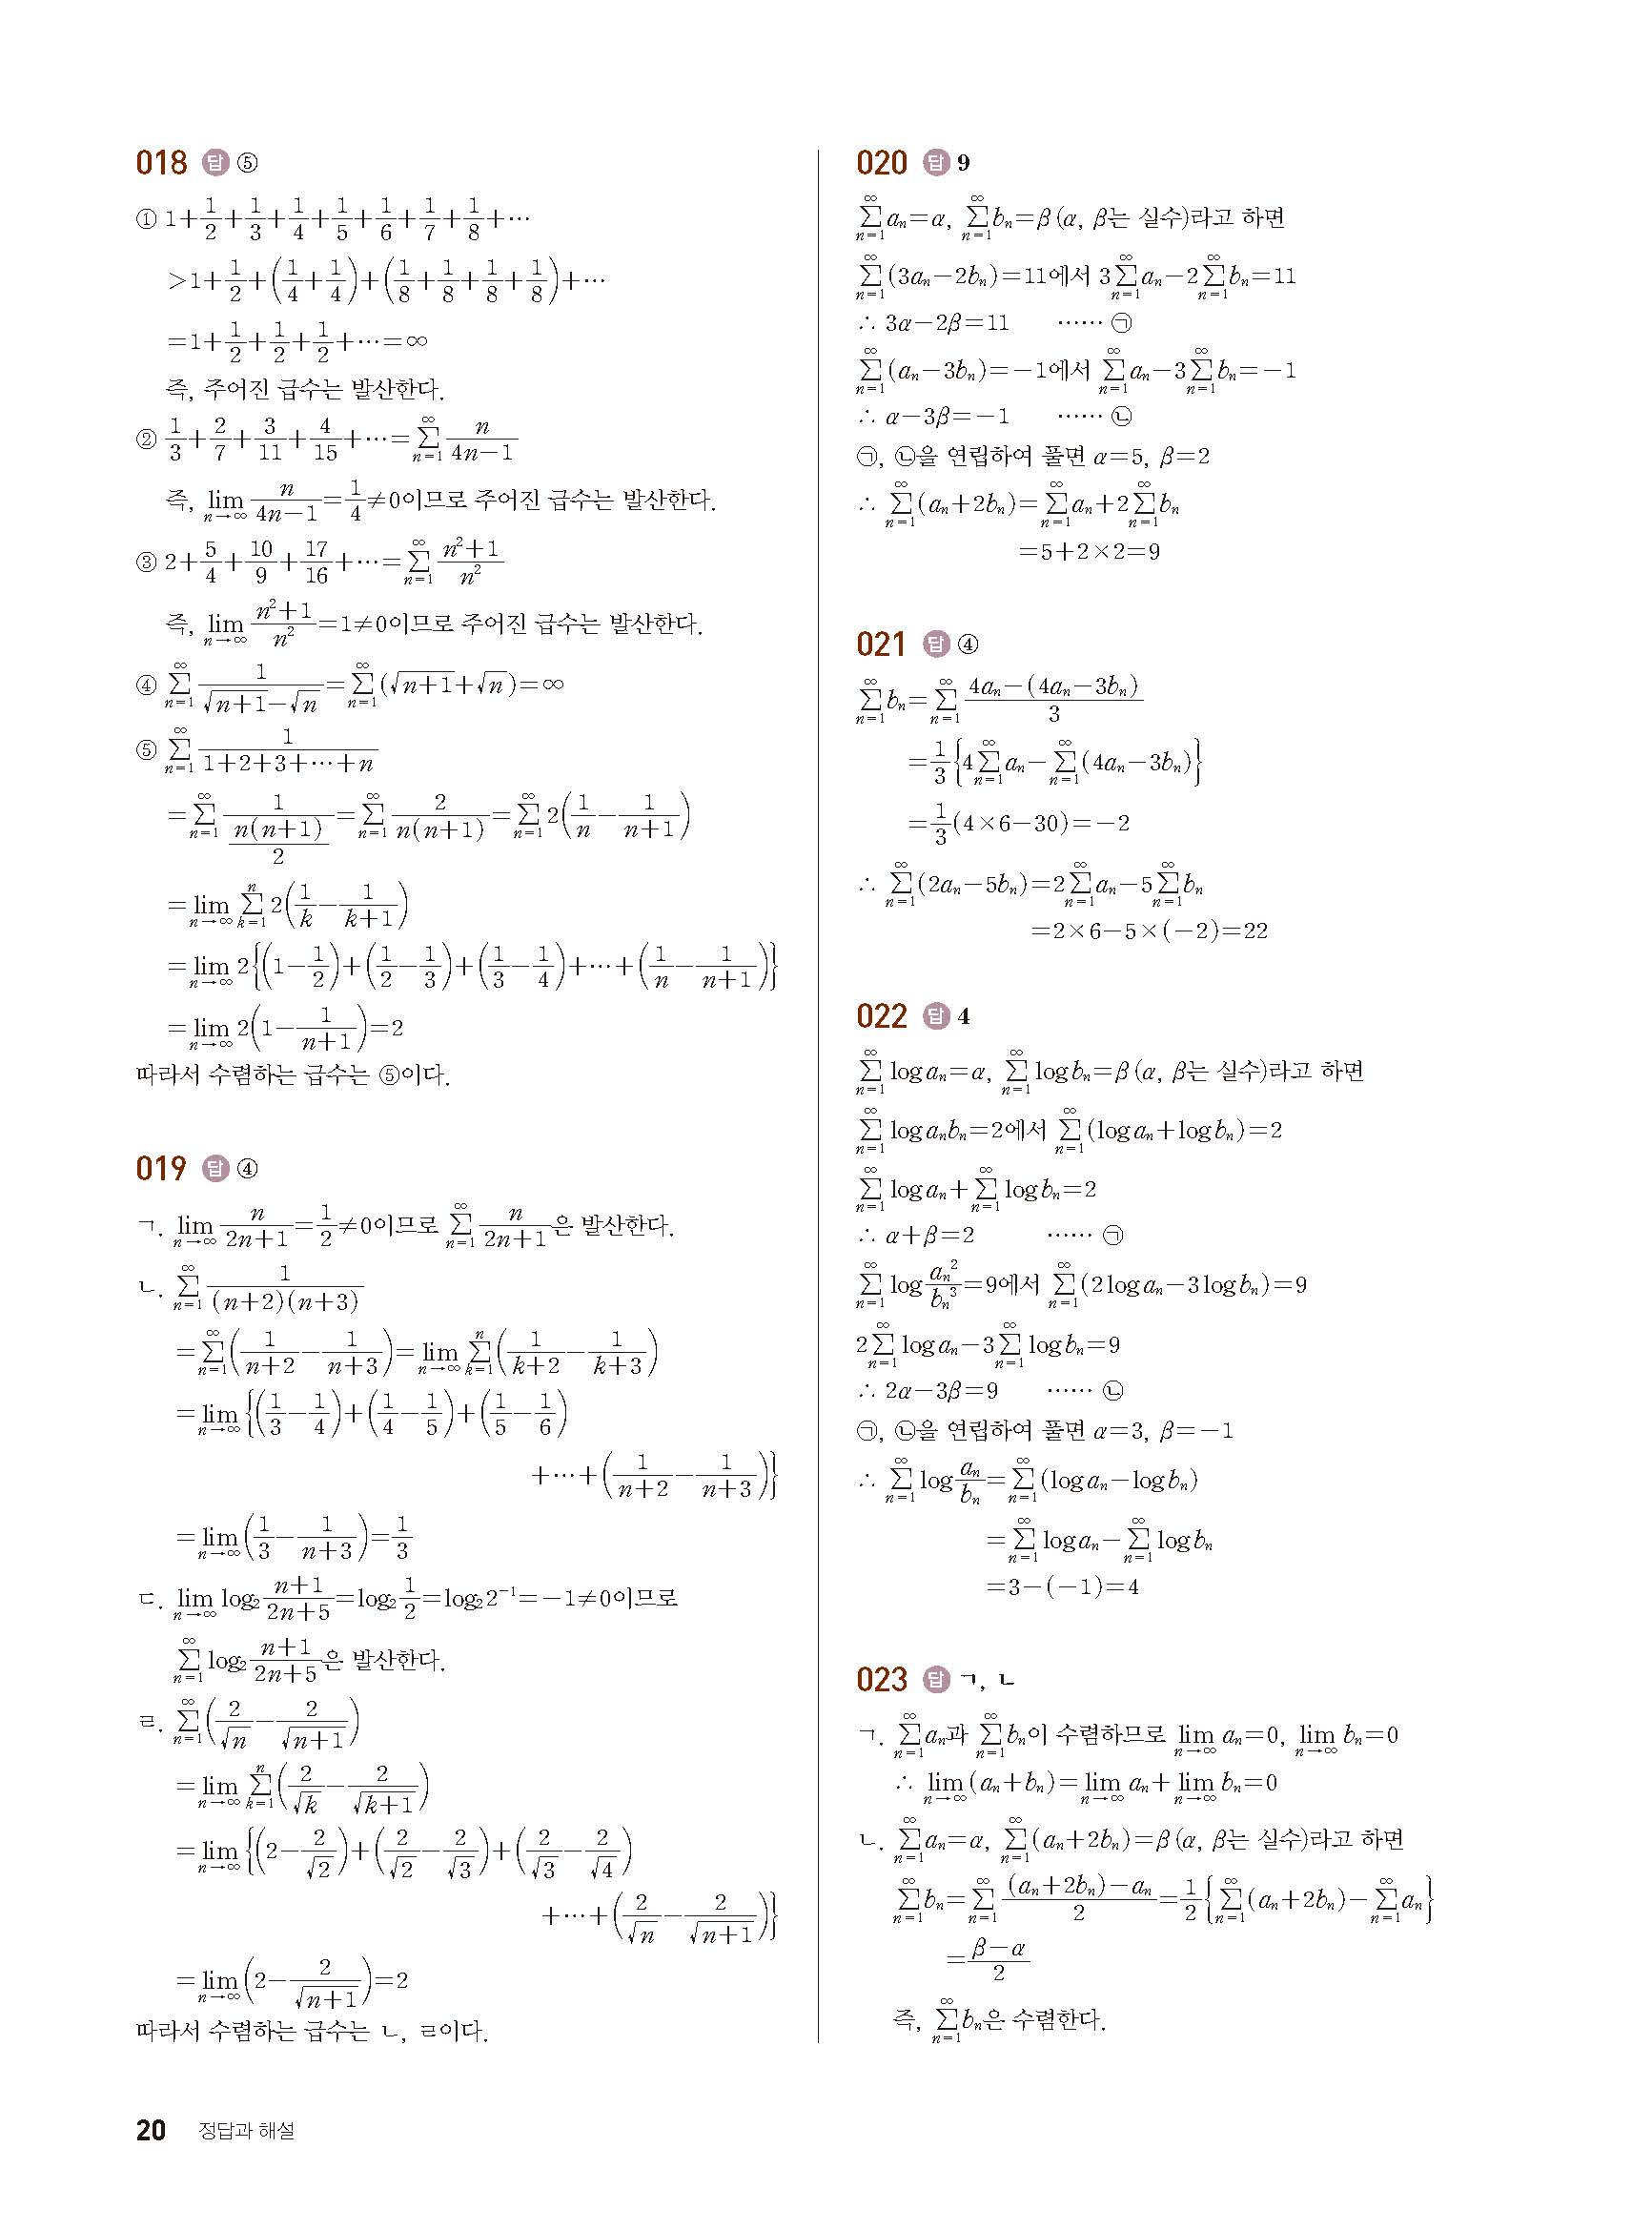 018 답 ⑤
① 1+1/2+1/3+1/4+1/5+1/6+1/7+1/8+⋯
>1+1/2+(1/4+1/4)+(1/8+1/8+1/8+1/8)+⋯
=1+1/2+1/2+1/2+⋯=∞
즉, 주어진 급수는 발산한다.
② 1/3+2/7+3/11+4/15+⋯=∑_{n=1}^{∞} n/(4n-1)
즉, lim_{n→∞} n/(4n-1)=1/4≠0이므로 주어진 급수는 발산한다.
③ 2+5/4+10/9+17/16+⋯=∑_{n=1}^{∞} (n²+1)/n²
즉, lim_{n→∞} (n²+1)/n²=1≠0이므로 주어진 급수는 발산한다.
④ ∑_{n=1}^{∞} 1/(√(n+1)-√n)=∑_{n=1}^{∞}(√(n+1)+√n)=∞
⑤ ∑_{n=1}^{∞} 1/(1+2+3+⋯+n)
=∑_{n=1}^{∞} 1/(n(n+1)/2)=∑_{n=1}^{∞} 2/(n(n+1))=∑_{n=1}^{∞} 2(1/n-1/(n+1))
=lim_{n→∞} ∑_{k=1}^{n} 2(1/k-1/(k+1))
=lim_{n→∞} 2{(1-1/2)+(1/2-1/3)+(1/3-1/4)+⋯+(1/n-1/(n+1))}
=lim_{n→∞} 2(1-1/(n+1))=2
따라서 수렴하는 급수는 ⑤이다.
019 답 ④
ㄱ. lim_{n→∞} n/(2n+1)=1/2≠0이므로 ∑_{n=1}^{∞} n/(2n+1)은 발산한다.
ㄴ. ∑_{n=1}^{∞} 1/((n+2)(n+3))
=∑_{n=1}^{∞}(1/(n+2)-1/(n+3))=lim_{n→∞} ∑_{k=1}^{n}(1/(k+2)-1/(k+3))
=lim_{n→∞}{(1/3-1/4)+(1/4-1/5)+(1/5-1/6)
+⋯+(1/(n+2)-1/(n+3))}
=lim_{n→∞}(1/3-1/(n+3))=1/3
ㄷ. lim_{n→∞} log₂ (n+1)/(2n+5)=log₂ 1/2=log₂ 2⁻¹=-1≠0이므로
∑_{n=1}^{∞} log₂ (n+1)/(2n+5)은 발산한다.
ㄹ. ∑_{n=1}^{∞}(2/√n-2/√(n+1))
=lim_{n→∞} ∑_{k=1}^{n}(2/√k-2/√(k+1))
=lim_{n→∞}{(2-2/√2)+(2/√2-2/√3)+(2/√3-2/√4)
+⋯+(2/√n-2/√(n+1))}
=lim_{n→∞}(2-2/√(n+1))=2
따라서 수렴하는 급수는 ㄴ, ㄹ이다.
020 답 9
∑_{n=1}^{∞} aₙ=α, ∑_{n=1}^{∞} bₙ=β (α, β는 실수)라고 하면
∑_{n=1}^{∞}(3aₙ-2bₙ)=11에서 3∑_{n=1}^{∞} aₙ-2∑_{n=1}^{∞} bₙ=11
∴ 3α-2β=11 ⋯⋯ ㉠
∑_{n=1}^{∞}(aₙ-3bₙ)=-1에서 ∑_{n=1}^{∞} aₙ-3∑_{n=1}^{∞} bₙ=-1
∴ α-3β=-1 ⋯⋯ ㉡
㉠, ㉡을 연립하여 풀면 α=5, β=2
∴ ∑_{n=1}^{∞}(aₙ+2bₙ)=∑_{n=1}^{∞} aₙ+2∑_{n=1}^{∞} bₙ
=5+2×2=9
021 답 ④
∑_{n=1}^{∞} bₙ=∑_{n=1}^{∞} (4aₙ-(4aₙ-3bₙ))/3
=1/3{4∑_{n=1}^{∞} aₙ-∑_{n=1}^{∞}(4aₙ-3bₙ)}
=1/3(4×6-30)=-2
∴ ∑_{n=1}^{∞}(2aₙ-5bₙ)=2∑_{n=1}^{∞} aₙ-5∑_{n=1}^{∞} bₙ
=2×6-5×(-2)=22
022 답 4
∑_{n=1}^{∞} log aₙ=α, ∑_{n=1}^{∞} log bₙ=β (α, β는 실수)라고 하면
∑_{n=1}^{∞} log aₙbₙ=2에서 ∑_{n=1}^{∞}(log aₙ+log bₙ)=2
∑_{n=1}^{∞} log aₙ+∑_{n=1}^{∞} log bₙ=2
∴ α+β=2 ⋯⋯ ㉠
∑_{n=1}^{∞} log aₙ²/bₙ³=9에서 ∑_{n=1}^{∞}(2log aₙ-3log bₙ)=9
2∑_{n=1}^{∞} log aₙ-3∑_{n=1}^{∞} log bₙ=9
∴ 2α-3β=9 ⋯⋯ ㉡
㉠, ㉡을 연립하여 풀면 α=3, β=-1
∴ ∑_{n=1}^{∞} log aₙ/bₙ=∑_{n=1}^{∞}(log aₙ-log bₙ)
=∑_{n=1}^{∞} log aₙ-∑_{n=1}^{∞} log bₙ
=3-(-1)=4
023 답 ㄱ, ㄴ
ㄱ. ∑_{n=1}^{∞} aₙ과 ∑_{n=1}^{∞} bₙ이 수렴하므로 lim_{n→∞} aₙ=0, lim_{n→∞} bₙ=0
∴ lim_{n→∞}(aₙ+bₙ)=lim_{n→∞} aₙ+lim_{n→∞} bₙ=0
ㄴ. ∑_{n=1}^{∞} aₙ=α, ∑_{n=1}^{∞}(aₙ+2bₙ)=β (α, β는 실수)라고 하면
∑_{n=1}^{∞} bₙ=∑_{n=1}^{∞} ((aₙ+2bₙ)-aₙ)/2=1/2{∑_{n=1}^{∞}(aₙ+2bₙ)-∑_{n=1}^{∞} aₙ}
=(β-α)/2
즉, ∑_{n=1}^{∞} bₙ은 수렴한다.
20 정답과 해설